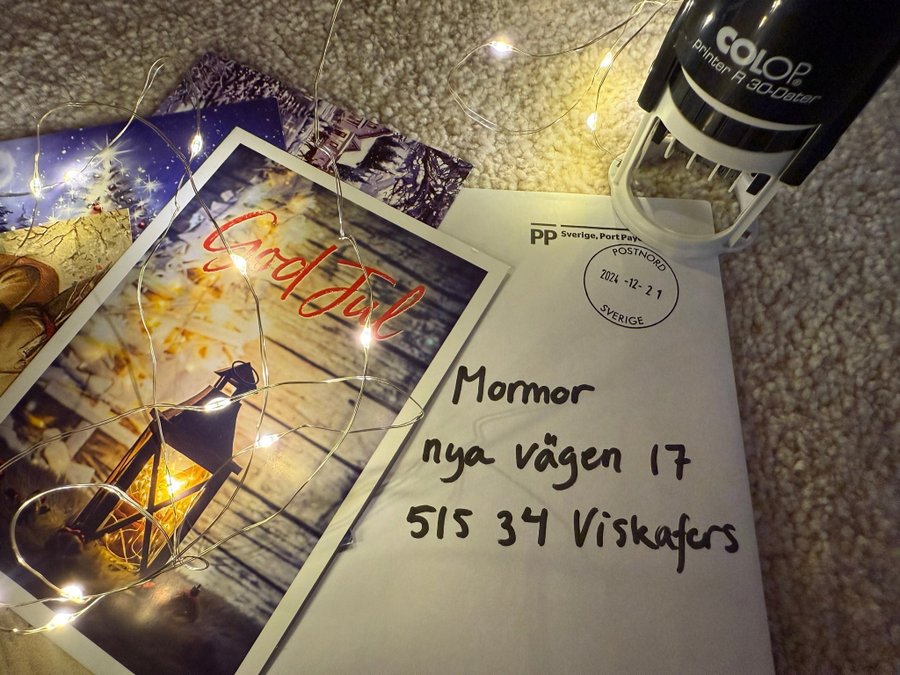 COLOP
printer R 30-Dater
PP Sverige, Port Pay
POSTNORD
2024 -12- 21
SVERIGE
God Jul
Mormor
nya vägen 17
515 34 Viskafors